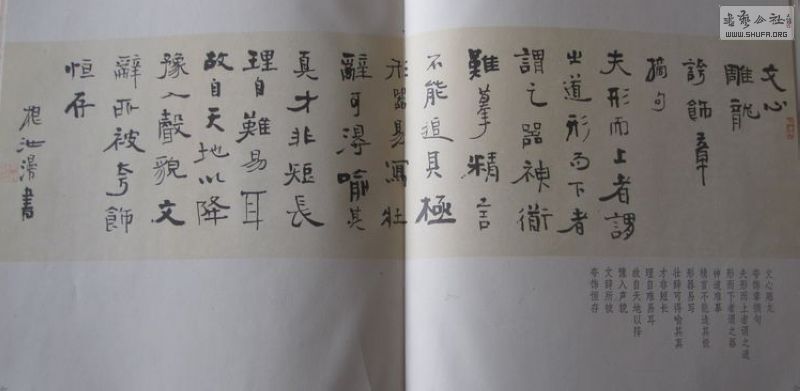 書藝公社
WWW.SHUFA.ORG
文心
雕龍
誇飾章
摘句
夫形而上者謂
之道形而下者
謂之器神衜
難摹精言
不能追其極
形器易寫壯
辭可得喻其
真才非短長
理自難易耳
故自天地以降
豫入聲貌文
辭所被夸飾
恒存
書
文心雕龙
夸饰章摘句
夫形而上者谓之道
形而下者谓之器
神道难摹
精言不能追其极
形器易写
壮辞可得喻其真
才非短长
理自难易耳
故自天地以降
豫入声貌
文辞所被
夸饰恒存